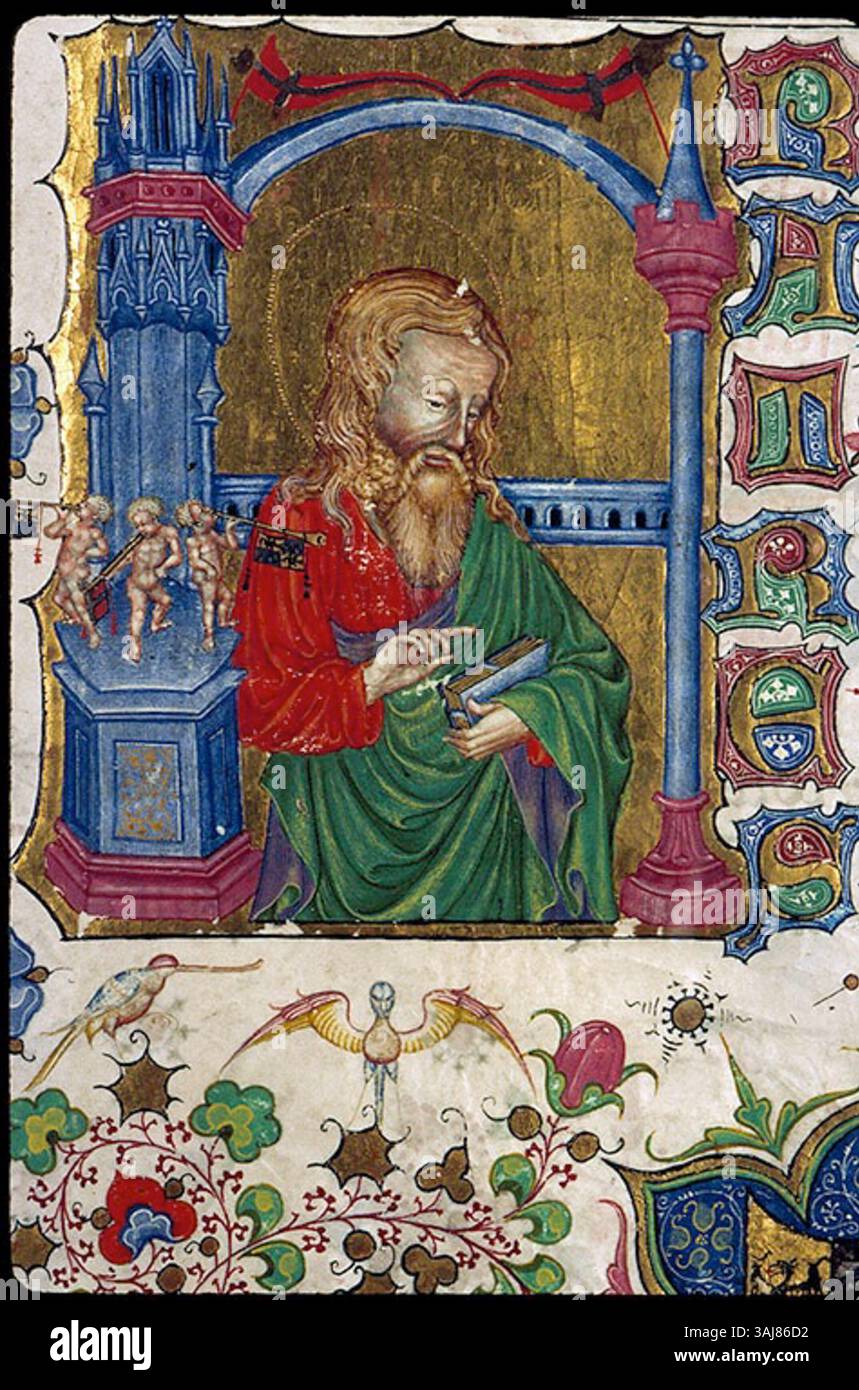 R
A
T
R
E
S
alamy
Image ID: 3AJ86D2
www.alamy.com